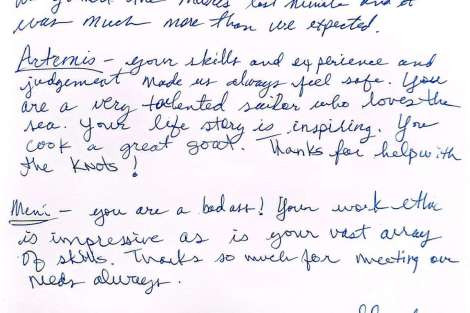 last minute and it
was much more than we expected.
Artemis - your skills and experience and
judgement made us always feel safe. You
are a very talented sailor who loves the
sea. Your life story is inspiring. You
cook a great goat. Thanks for help with
the knots!
Meni - you are a badass! Your work ethic
is impressive as is your vast array
of skills. Thanks so much for meeting our
needs always.